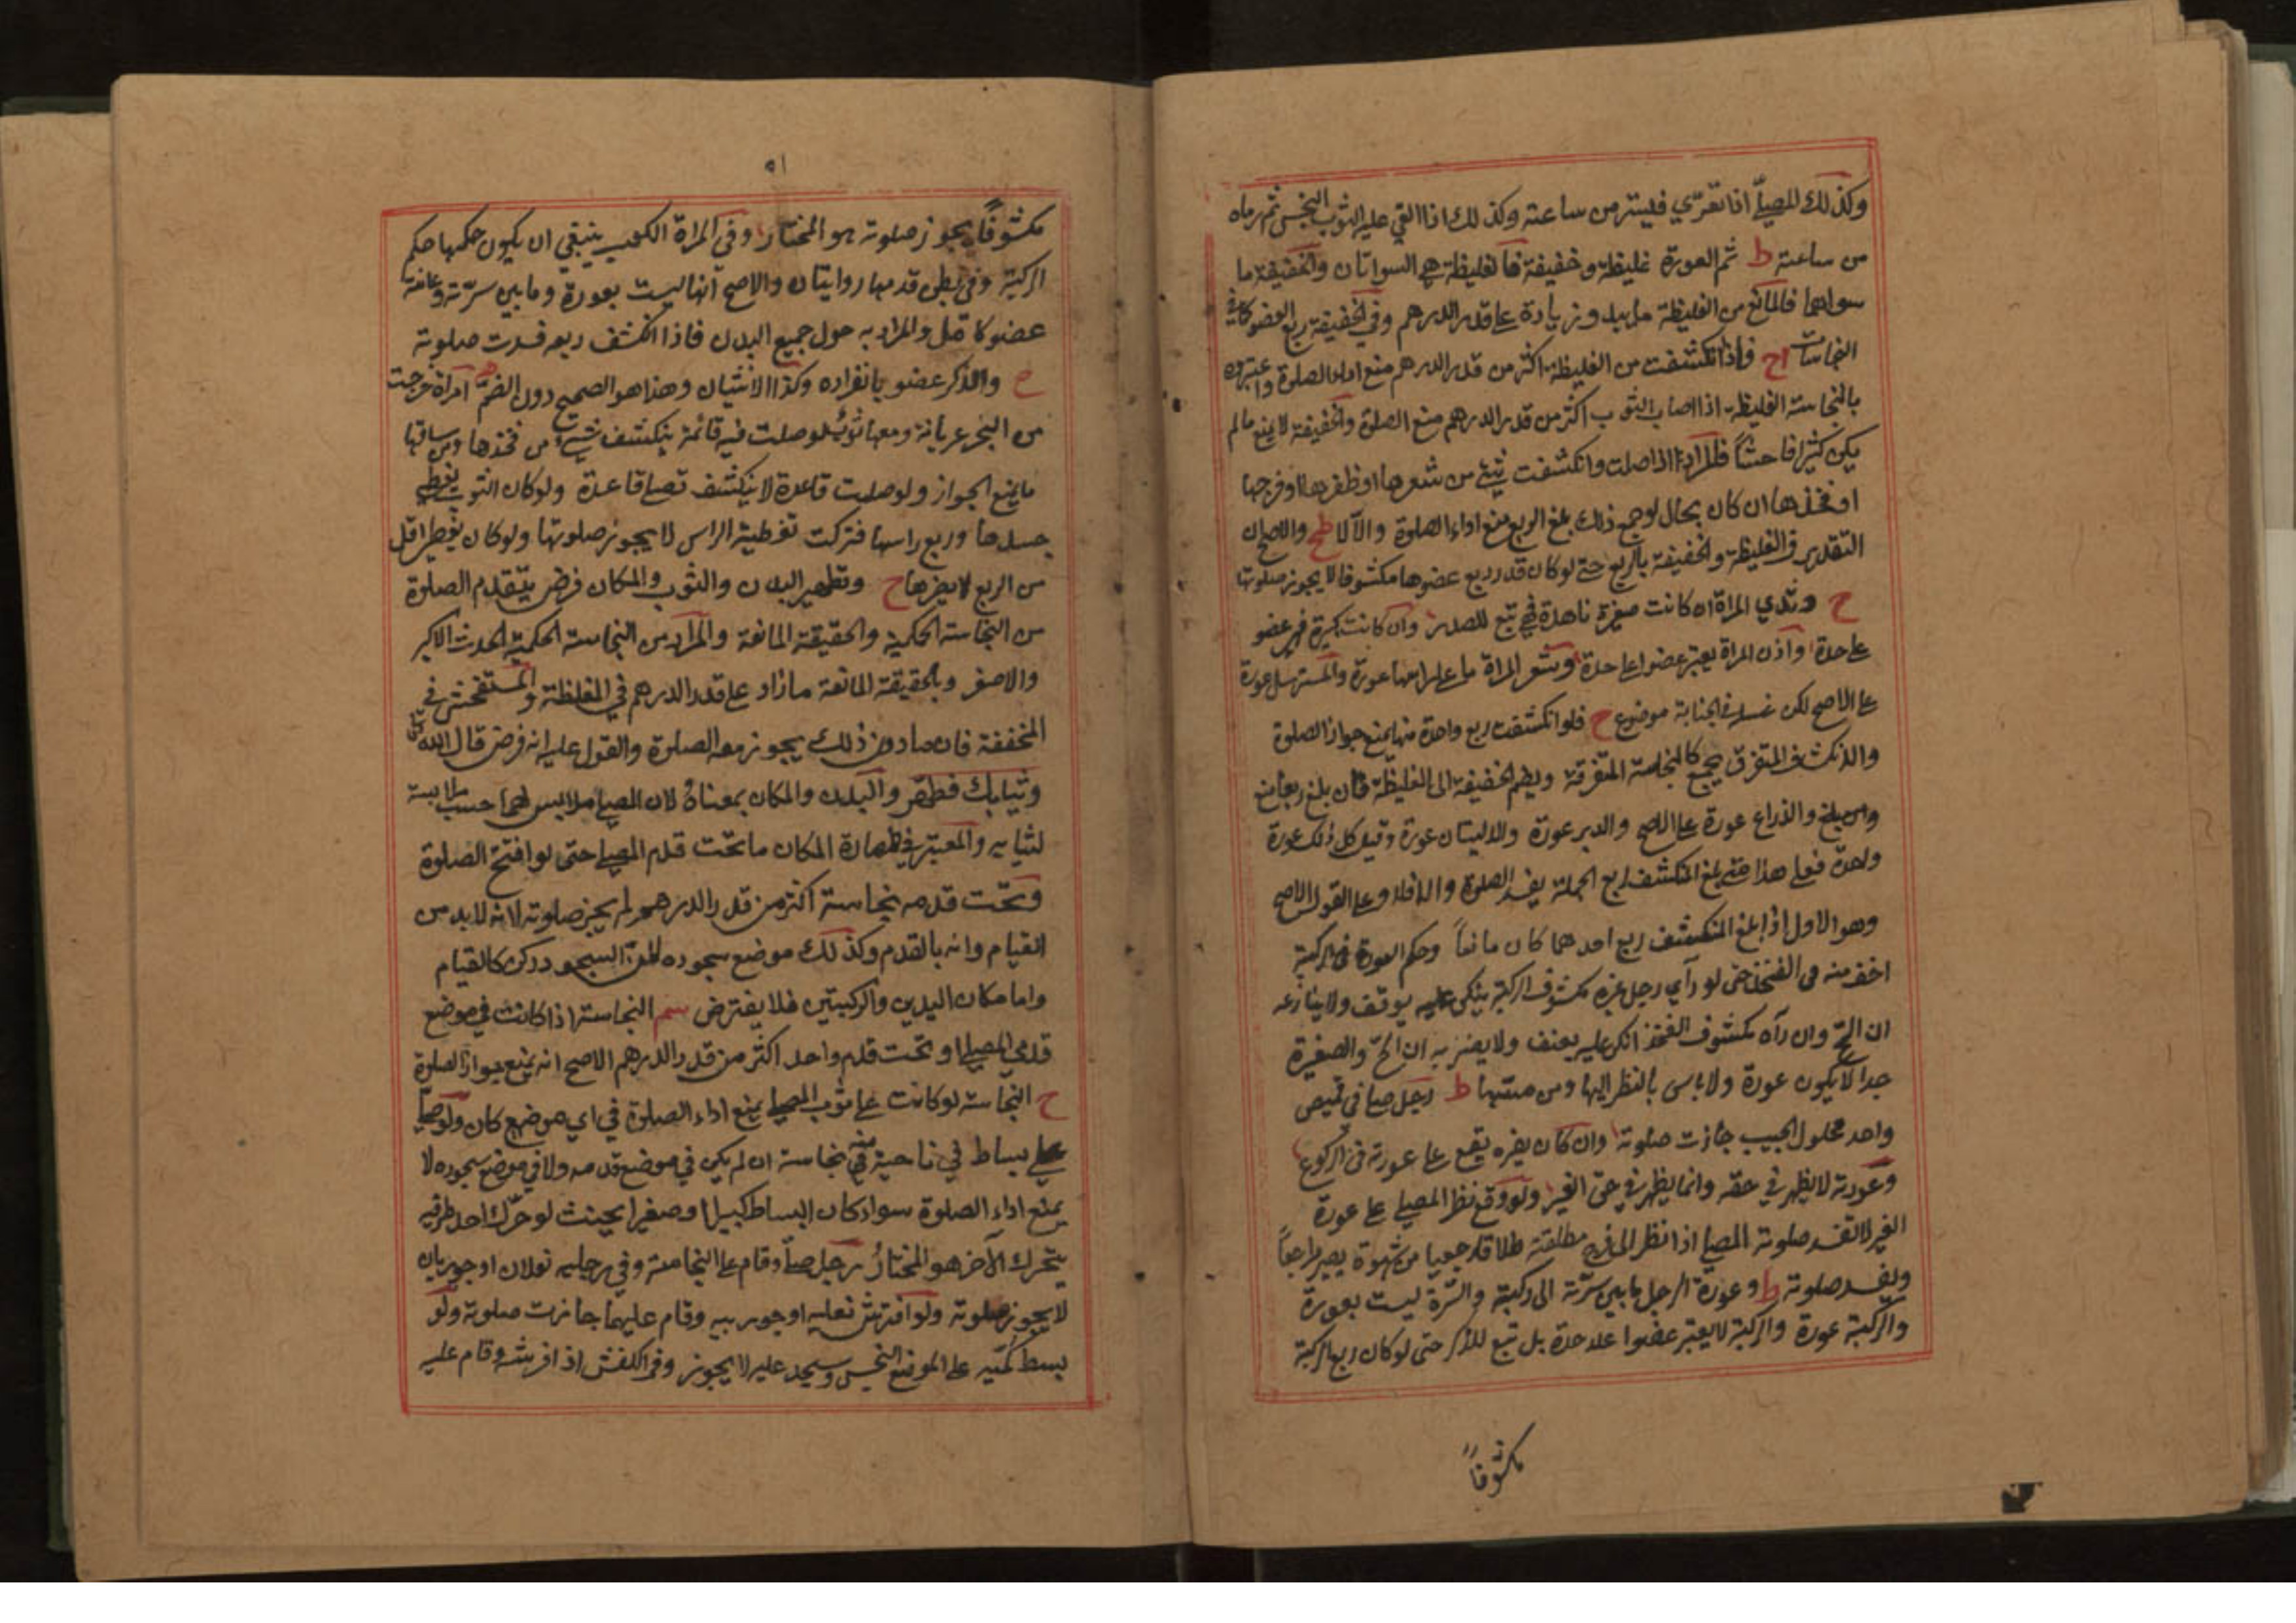 وكذلك المصلي اذا تعرّي فيستر من ساعته وكذلك اذا القي عليه الثوب النجس ثم رماه
من ساعته ط ثم العورة غليظة وخفيفة فالغليظة هي السواتان والخفيفة ما
سواهما فالمانع من الغليظة ما يبدو زيادة علي قدر الدرهم وفي الخفيفة ربع العضو كما في
النجاسات ح فاذا انكشفت من الغليظة اكثر من قدر الدرهم منع اداء الصلوة واعتبروه
بالنجاسة الغليظة اذا اصاب الثوب اكثر من قدر الدرهم منع الصلوة والخفيفة لا يمنع مالم
يكن كثيرا فاحشاً فالمراة اذا صلت وانكشفت شيئ من شعرها او ظفرها او فرجها
او فخذها ان كان بحال لو جمع ذلك بلغ الربع يمنع اداء الصلوة والا لا ط ح والاصح ان
التقدير في الغليظة والخفيفة بالربع حتي لو كان قدر ربع عضوها مكشوفا لا يجوز صلوتها
ح وثدي المراة ان كانت صغيرة ناهدة فهي تبع للصدر وان كانت كبيرة فهو عضو
علي حدة واذن المراة يعتبر عضوا علي حدة وشعر المراة ما علي راسها عورة والمسترسل عورة
علي الاصح لكن غسله في الجنابة موضوع ح فلو انكشفت ربع واحدة منها يمنع جواز الصلوة
والانكشاف المتفرق يجمع كالنجاسة المتفرقة ويضم الخفيفة الي الغليظة فان بلغ ربعا منع
والذراع عورة علي الاصح والدبر عورة والاليتان عورة وقيل كل ذلك عورة
واحدة فعلي هذا متي بلغ المنكشف ربع الجملة يفسد الصلوة والا فلا وعلي القول الاصح
وهو الاول اذا بلغ المنكشف ربع احدهما كان مانعاً وحكم العورة في الركبة
اخف منه في الفخذ حتي لو رآي رجل غيره مكشوف الركبة ينكر عليه يرفق ولا ينازعه
ان الحّ وان رآه مكشوف الفخذ انكر عليه بعنف ولا يضربه ان الحّ والصغيرة
جدا لا يكون عورة ولا باس بالنظر اليها ومن مسّها ط رجل صلي في قميص
واحد محلول الجيب جازت صلوته وان كان بصره يقع علي عورته في الركوع
وعورته لا يظهر في حقه وانما يظهر في حق الغير ولو وقع نظر المصلي علي عورة
الغير لا تفسد صلوته المصلي اذا نظر الي فرج مطلقته طلاقا رجعيا من شهوة يصير مراجعاً
ويفسد صلوته ط وعورة الرجل ما بين سرّته الي ركبته والسّرة ليست بعورة
والركبة عورة والركبة لا يعتبر عضوا علاحدة بل تبع للذكر حتي لو كان ربع الركبة
مكشوفاً
٥١
مكشوفاً يجوز صلوته هو المختار وفي المراة الكعب ينبغي ان يكون حكمها حكم
الركبة وفي بطن قدمها روايتان والاصح انها ليست بعورة وما بين سرّته وعانته
عضو كامل والمراد به حول جميع البدن فاذا انكشف ربعه فسدت صلوته
ح والذكر عضو بانفراده وكذا الانثيان وهذا هو الصحيح دون الضمّ امراة خرجت
من البحر عريانة ومعها ثوب لو صلت فيه قائمة ينكشف شيء من فخذها ومن ساقها
ما يمنع الجواز ولو صلت قاعدة لا ينكشف تصلي قاعدة ولو كان الثوب يغطي
جسدها وربع راسها فتركت تغطية الراس لا يجوز صلوتها ولو كان يغطي اقل
من الربع لا يضرها ح وتطهير البدن والثوب والمكان فرض يتقدم الصلوة
من النجاسة الحكمية والحقيقة المانعة والمراد من النجاسة الحكمية الحدث الاكبر
والاصغر وبالحقيقة المانعة مازاد علي قدر الدرهم في المغلظة والمستفحش في
المخففة فان مادون ذلك يجوز معه الصلوة والقول عليه انه فرض قال الله تعالى
وثيابك فطهّر والبدن والمكان بمعناه لان المصلي ملابس لهما حسب ملابسة
لثيابه والمعتبر في طهارة المكان ما تحت قدم المصلي حتي لو افتتح الصلوة
وتحت قدمه نجاسة اكثر من قدر الدرهم لم يجز صلوته لانه لابد من
القيام وانه بالقدم وكذلك موضع سجوده لان السجود ركن كالقيام
واما مكان اليدين والركبتين فلا يفترض سم النجاسة اذا كانت في موضع
قدمي المصلي او تحت قدم واحد اكثر من قدر الدرهم الاصح انه يمنع جواز الصلوة
ح النجاسة لو كانت علي ثوب المصلي يمنع اداء الصلوة في اي موضع كان ولو صلّي
علي بساط في ناحية منه نجاسة ان لم يكن في موضع قدمه ولا في موضع سجوده لا
يمنع اداء الصلوة سواء كان البساط كبيرا او صغيرا بحيث لو حرّك احد طرفيه
يتحرك الآخر هو المختارُ رجل صلّي وقام علي النجاسة وفي رجليه نعلان او جوربان
لا يجوز صلوته ولو افترش نعليه او جوربيه وقام عليهما جازت صلوته ولو
بسط كمّيه علي الموضع النجس وسجد عليه لا يجوز وفي الكفش اذا فرشه وقام عليه